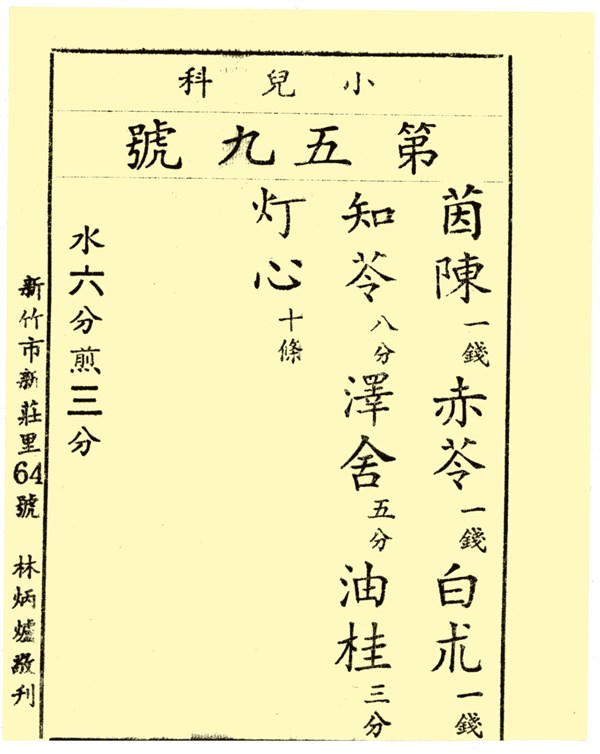 小兒科
第五九號
茵陳一錢赤苓一錢白朮一錢
知苓八分澤舍五分油桂三分
灯心十條
水六分煎三分
新竹市新莊里64號 林炳爐敬刊